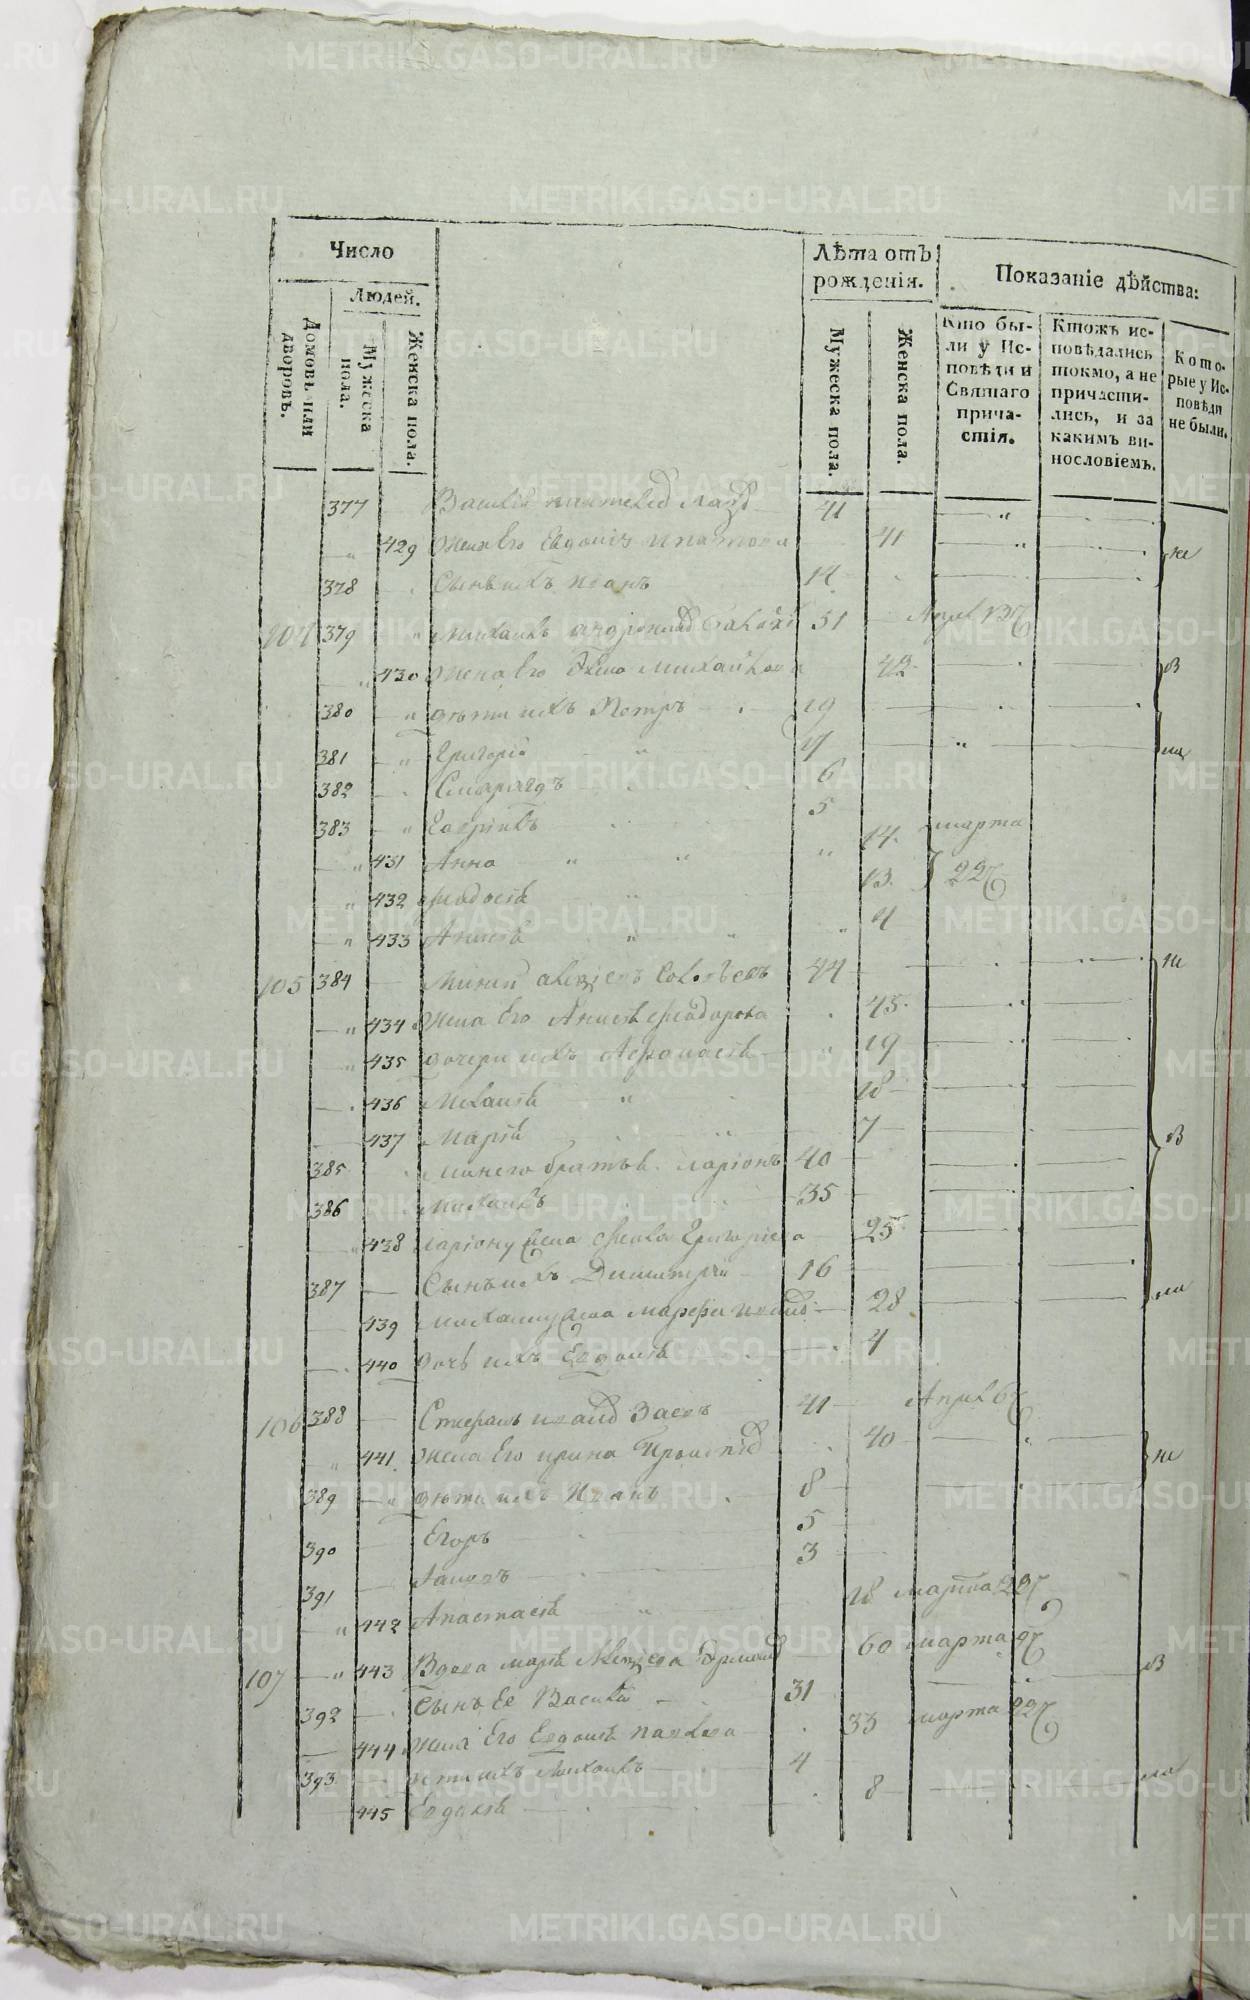 Число
Лѣта отъ рожденія.
Показаніе дѣйства:
Людей.
Домовъ или дворовъ.
Мужеска пола.
Женска пола.
Мужеска пола.
Женска пола.
Кто были у Исповѣди и Святаго причастія.
Ктожъ исповѣдались токмо, а не причастились, и за какимъ винословіемъ.
Которые у Исповѣди не были.
377 Василій 41
429 жена Его Евдокія 41
378 Сынъ ихъ Иванъ 14
104 379 Михаилъ 51 Апрел 13
430 жена Его Михайлова 42
380 дѣти ихъ Петръ 19
381 Григорій 17
382 Смарагдъ 6
383 Гавріилъ 5
431 Анна 14 марта
432 Феодосія 13 22
433 Анисія 4
105 384 Миней Алексіевъ Соловьевъ 44
434 жена Его Анисія Феодорова 45
435 дочери ихъ Афонасія 19
436 Меланія 18
437 Марія 7
385 Минего братья Ларіонъ 40
386 Михаилъ 35
438 Ларіону жена Фекла Григоріева 25
387 Сынъ ихъ Димитрій 16
439 Михаилу жена Марфа 28
440 дочь ихъ Евдокія 4
106 388 Стефанъ Иванов Заевъ 41 Апрел 6
441 жена Его Ирина 40
389 дѣти ихъ Иванъ 8
390 Егоръ 5
391 Іаковъ 3
442 Анастасія 18 марта 29
107 443 Вдова Марія Алексіева 60 марта
392 Сынъ Ее Василій 31
444 жена Его Евдокія Павлова 33 марта 22
393 дѣти ихъ Михаилъ 4
445 Евдокія 8
METRIKI.GASO-URAL.RU